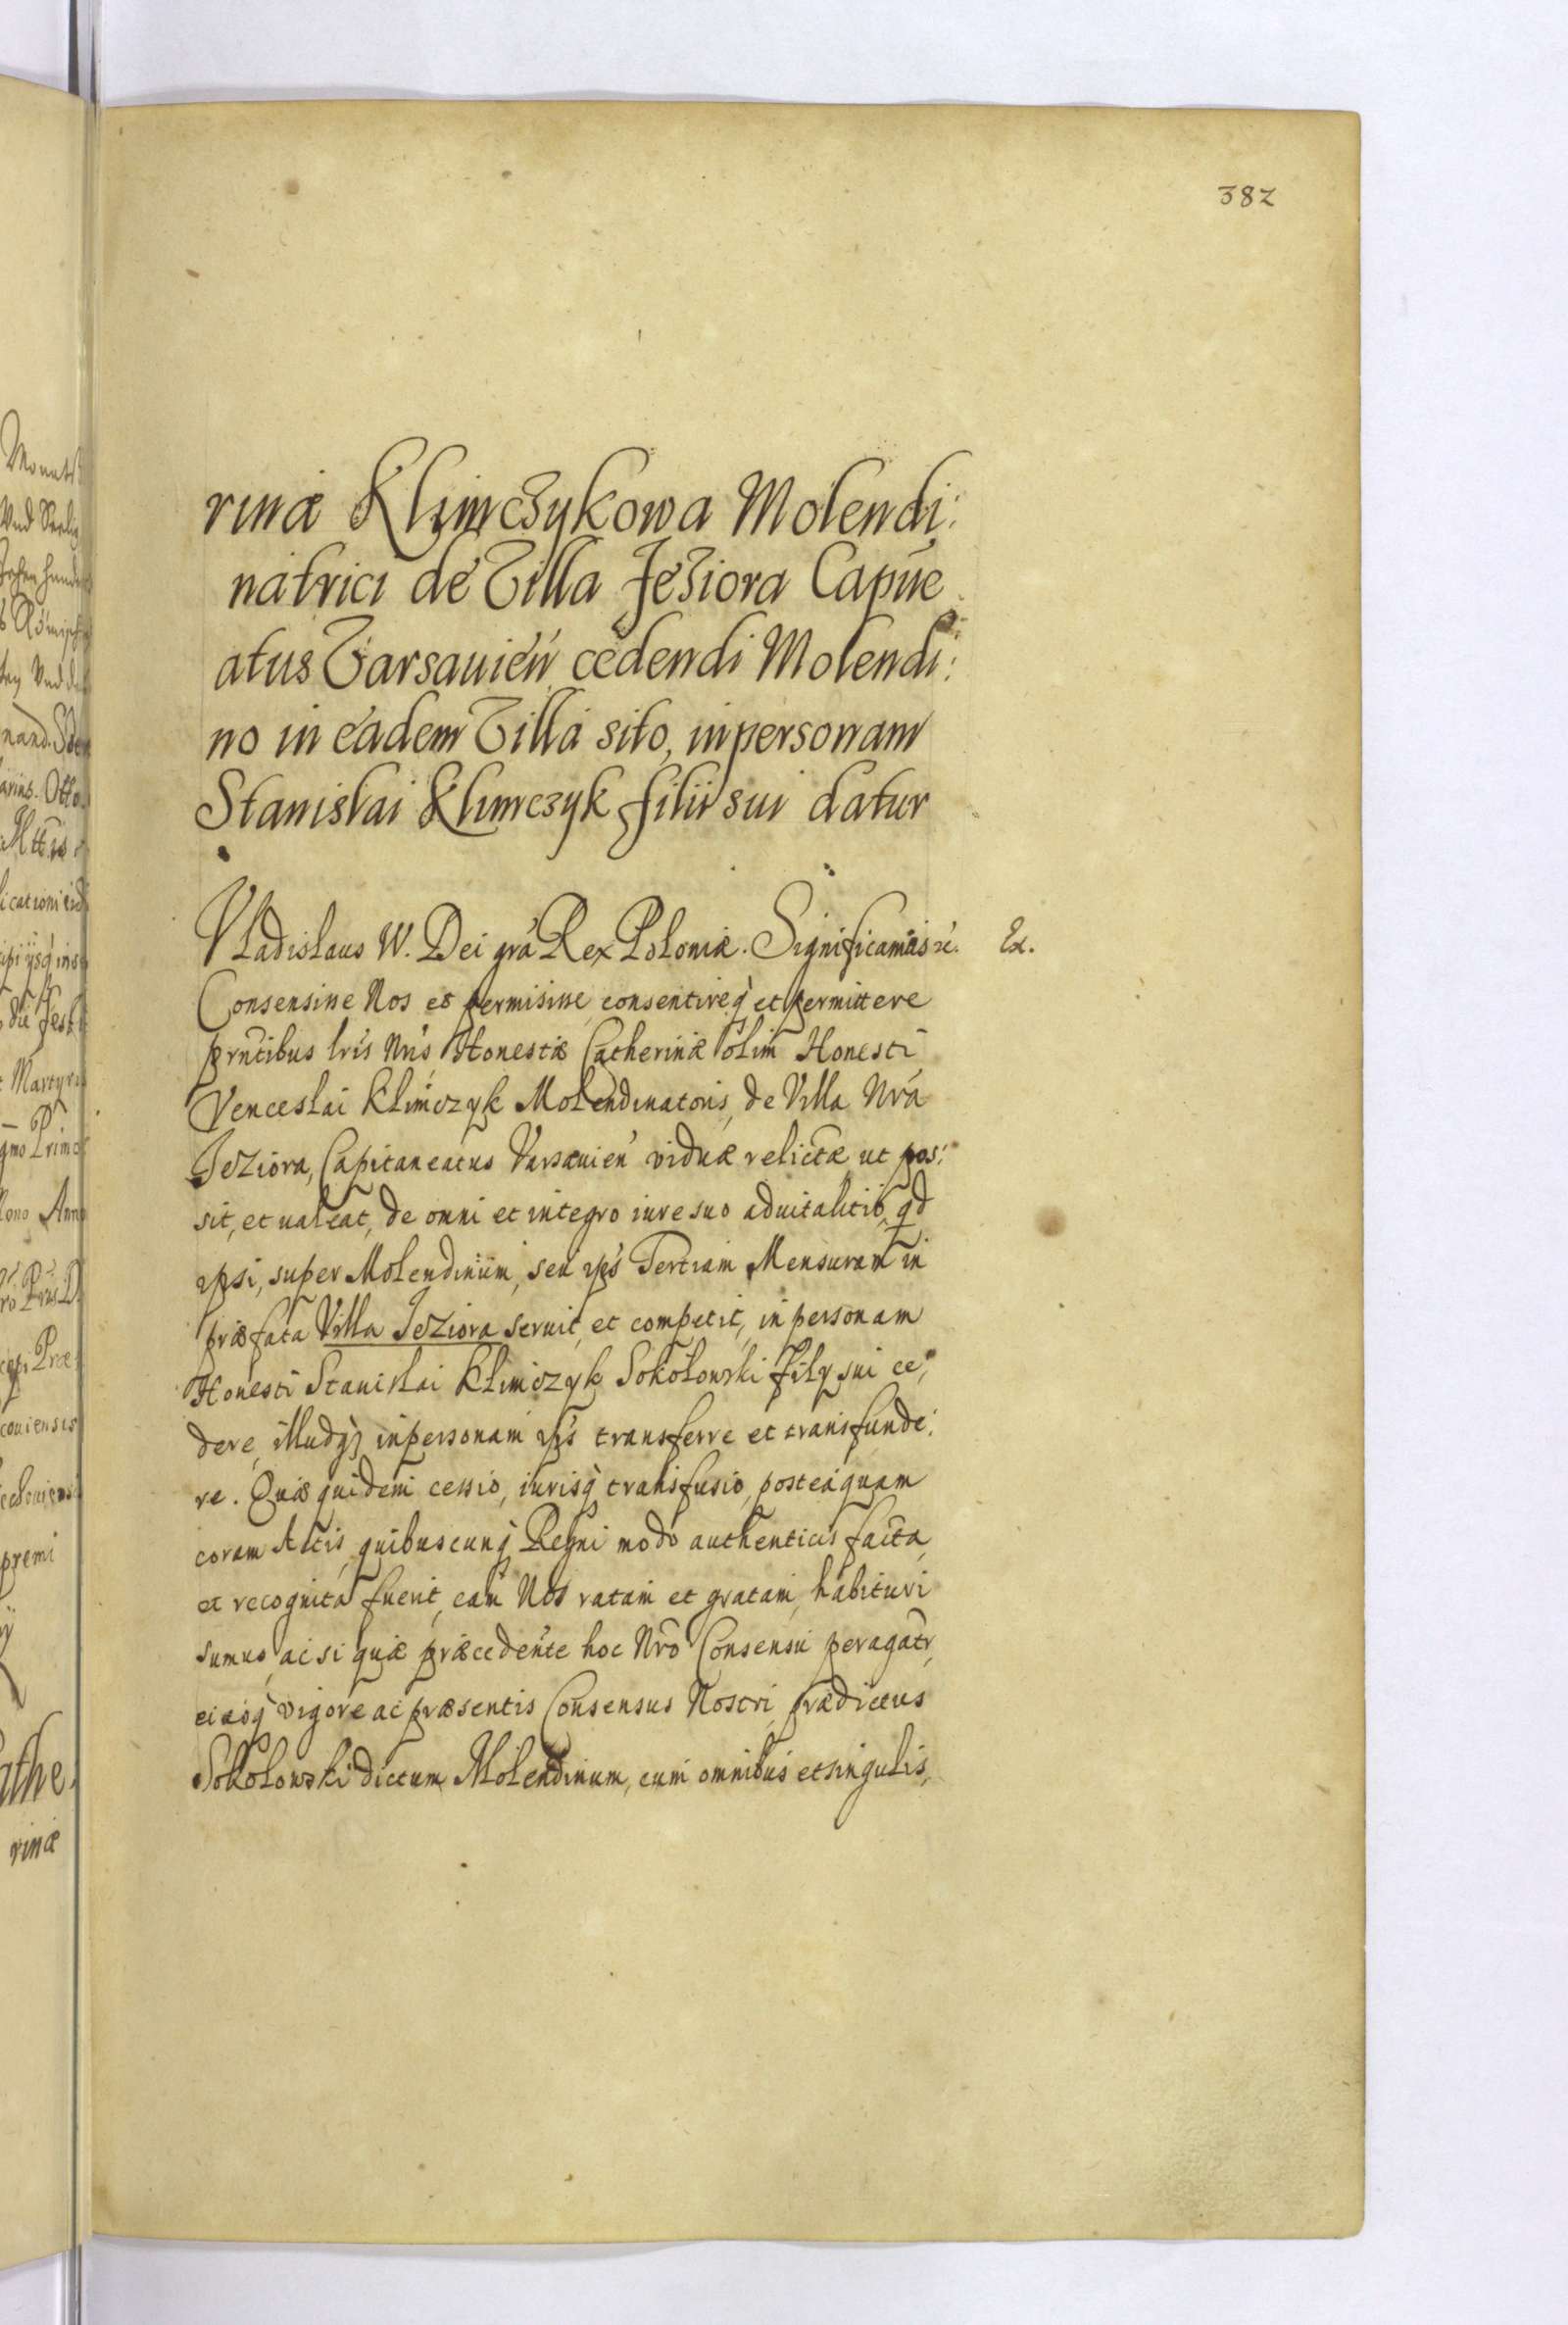 382
rinæ Klimczykowa Molendi:
natrici de Villa Jeziora Capñe
atus Varsavień cedendi Molendi:
no in eadem Villa sito, in personam
Stanislai Klimczyk filii sui datur
Vladislaus IV. Dei grã Rex Poloniæ. Significamus &c. Ex.
Consensisse Nos et permisisse, consentireq̃ et permittere
prñtibus lris Nris Honestæ Catherinæ olim Honesti
Venceslai Klimczyk Molendinatoris, de Villa Nra
Jeziora, Capitaneatus Varsauień viduæ relictæ, ut pos:
sit, et ualeat, de omni et integro iure suo aduitalitio, qd
ipsi, super Molendinum, seu ips Tertiam Mensuram in
præfata Villa Jeziora seruit, et competit, in personam
Honesti Stanislai Klimczyk Sokołowski Filÿ sui ce:
dere, illudq̃ in personam ips transferre et transfunde:
re. Quæ quidem cessio, iurisq̃ transfusio, posteaquam
coram Actis quibuscunq̃ Regni modo authenticis facta,
et recognita fuerit, eam Nos ratam et gratam, habituri
sumus, ac si quæ præcedente hoc Nro Consensu peragatr,
eiusq̃ vigore ac præsentis Consensus Nostri, prædictus
Sokołowski dictum Molendinum, cum omnibus et singulis,
Monats
athe:
rinæ
premi